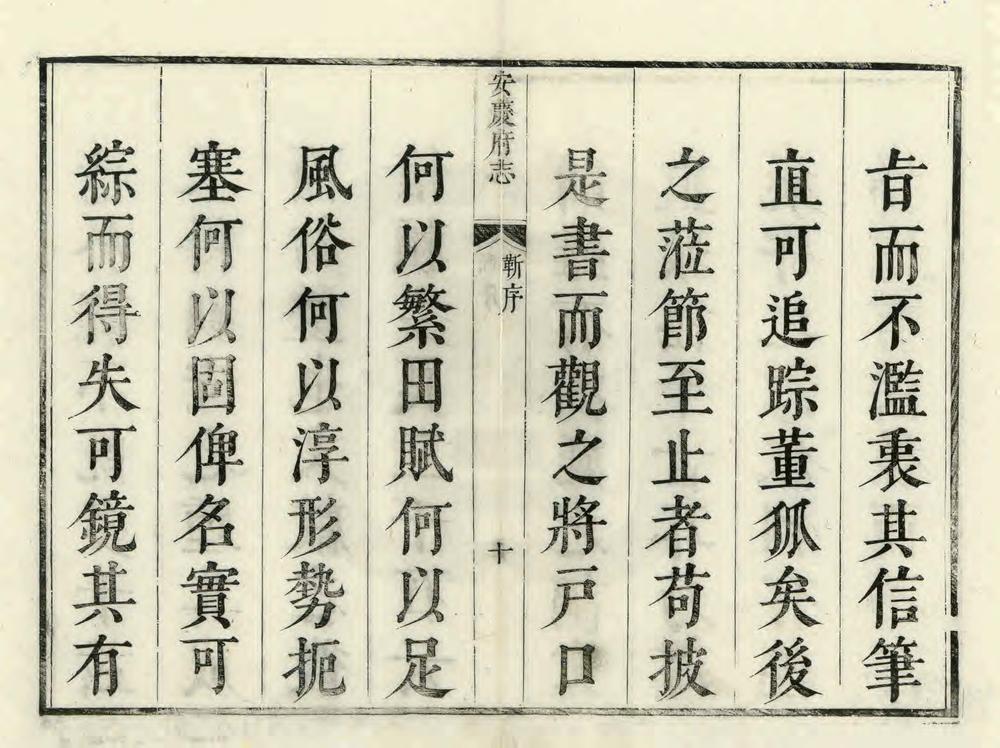 旨而不濫裏其信筆
直可追踪董狐矣後
之蒞節至止者苟披
是書而觀之將戸口
安慶府志
靳序
十
何以繁田賦何以足
風俗何以淳形勢扼
塞何以固俾名實可
綜而得失可鏡其有